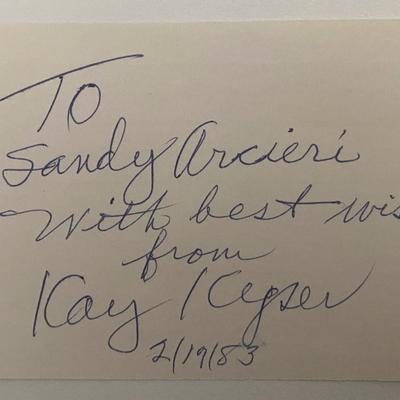 To
Sandy Arcieri
With best wis
from
Kay Kyser
2/19/83